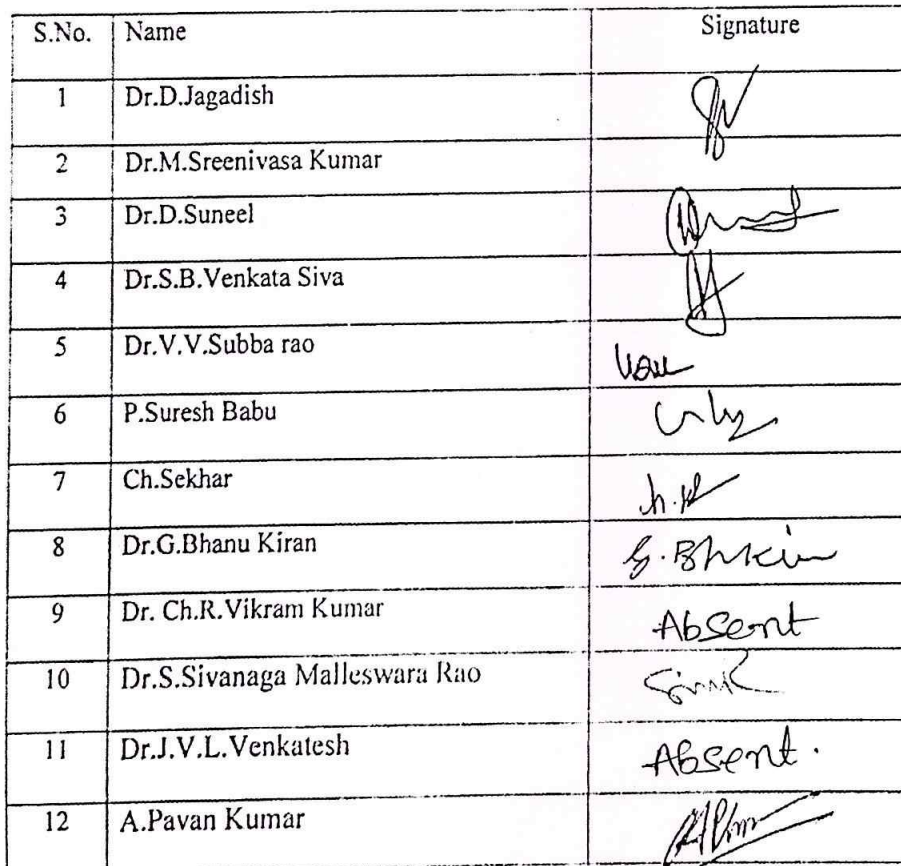 S.No. Name Signature
1 Dr.D.Jagadish
2 Dr.M.Sreenivasa Kumar
3 Dr.D.Suneel
4 Dr.S.B.Venkata Siva
5 Dr.V.V.Subba rao
6 P.Suresh Babu
7 Ch.Sekhar
8 Dr.G.Bhanu Kiran
9 Dr. Ch.R.Vikram Kumar Absent
10 Dr.S.Sivanaga Malleswara Rao
11 Dr.J.V.L.Venkatesh Absent.
12 A.Pavan Kumar